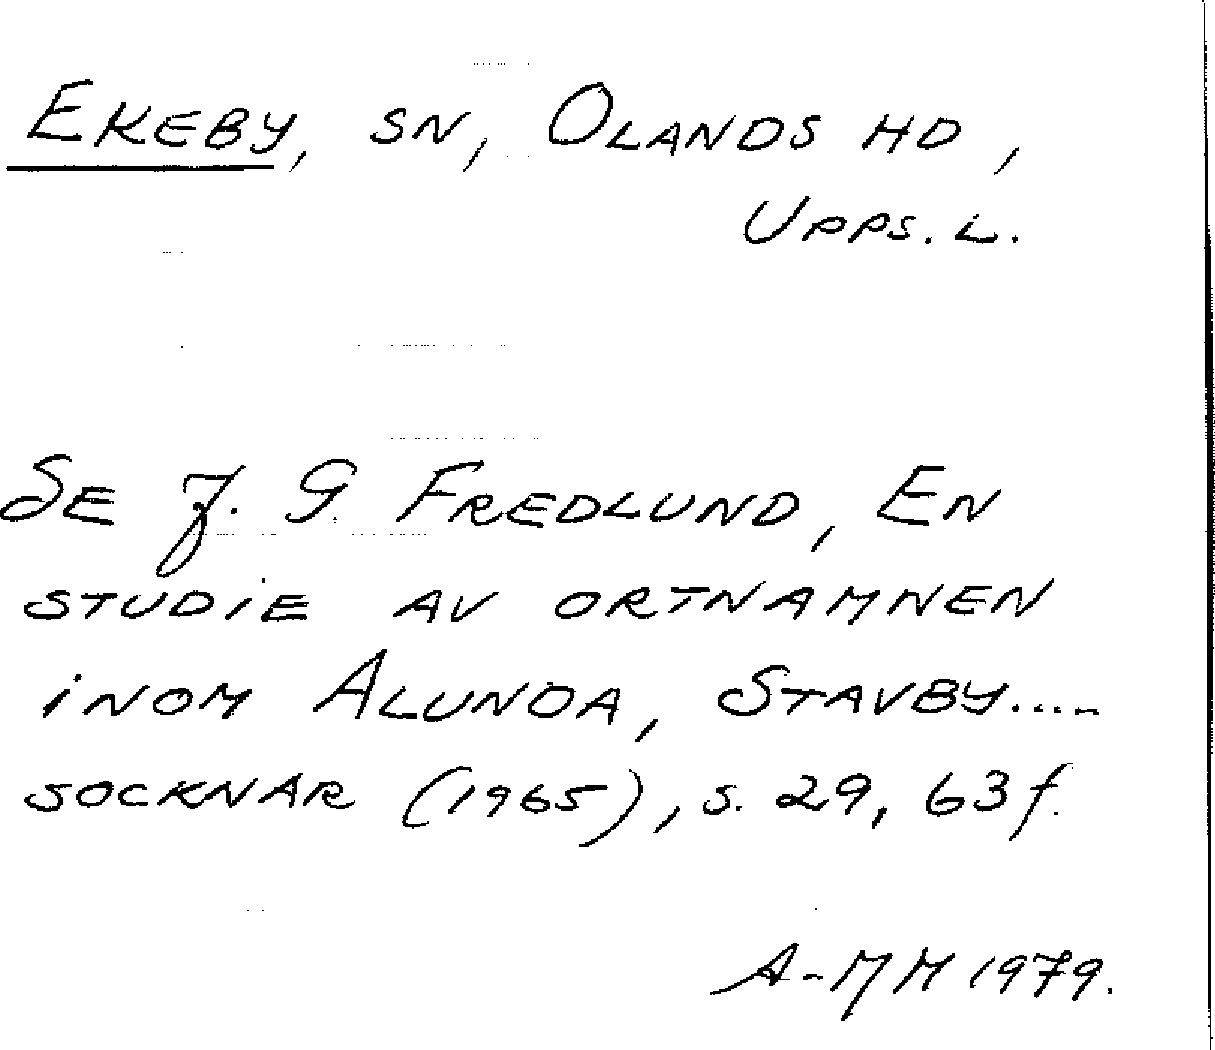 EKEBY, SN, OLANDS HD,
UPPS. L.
SE J. G. FREDLUND, EN
STUDIE AV ORTNAMNEN
INOM ALUNDA, STAVBY....
SOCKNAR (1965), s. 29, 63 f.
A-MM 1979.